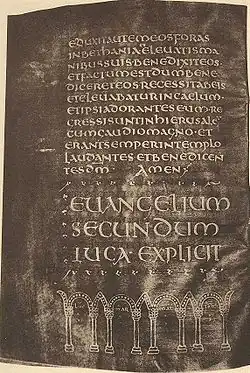 EDUXITAUTEMEOSFORAS
INBETHANIAETELEUATISMA
NIBUSSUISBENEDIXITEOS
ETFACTUMESTDUMBENE
DICERETEOSRECESSITABEIS
ETELEUABATURINCAELUM
ETIPSIADORANTESEUMRE
GRESSISUNTINHIERUSALE
CUMGAUDIOMAGNO·ET
ERANTSEMPERINTEMPLO
LAUDANTESETBENEDICEN
TESDM· AMEN
EUANGELIUM
SECUNDUM
LUCA EXPLICIT